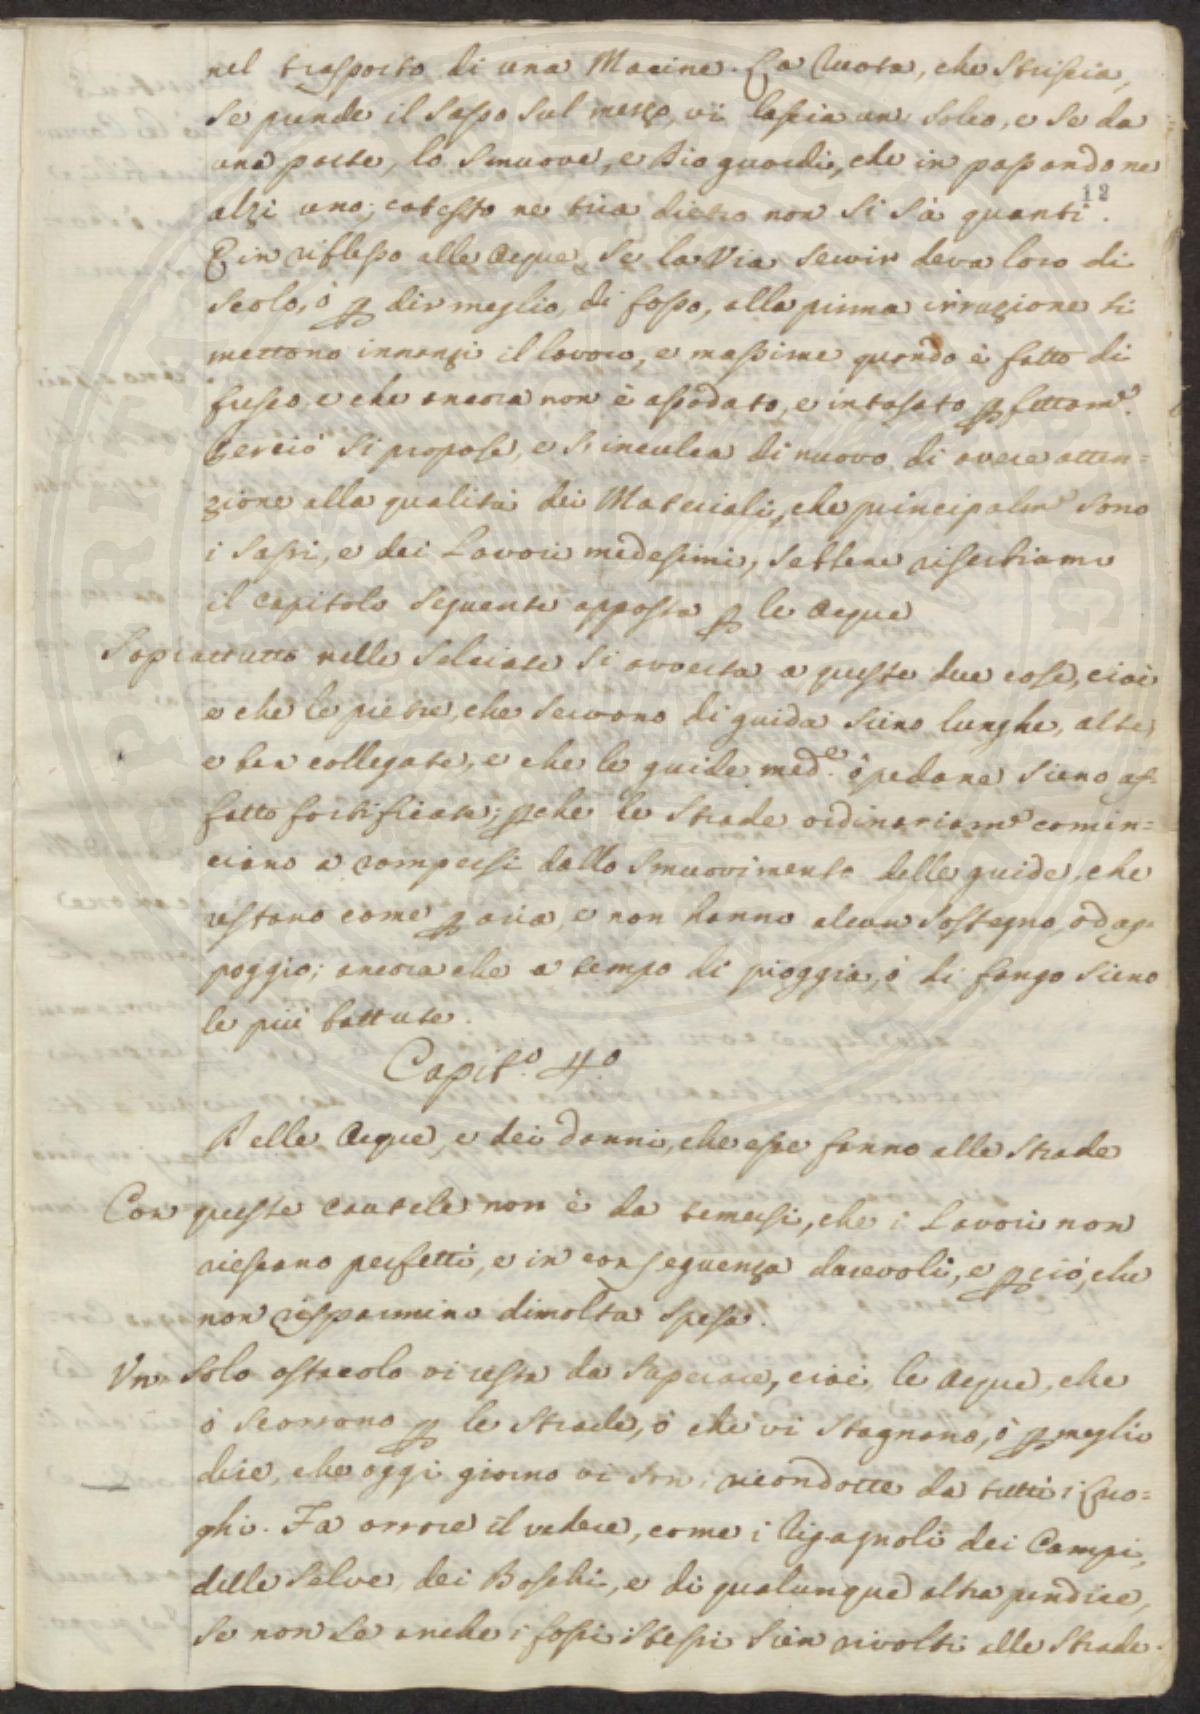 nel trasporto di una Macine. La Ruota, che striscia,
se prende il sasso sul mezzo, vi lascia un solco, e se da
una parte, lo smuove, e Dio guardi, che in passando ne
12
alzi uno; cotesto ne tira dietro non si sà quanti.
E in riflesso alle acque, se la Via servir deva loro di
scolo, ò p dir meglio, di fosso, alla prima irruzione ti
mettono innanzi il lavoro, e massime quando è fatto di
fresco e che ancora non è assodato, e intasato p fettam.e
Perciò si propose, e s'inculca di nuovo di avere atten=
zione alla qualità dei Materiali, che principalm.e sono
i sassi, e dei Lavori medesimi, sebbene riserbiamo
il capitolo seguente apposta p le acque
Soprattutto nelle selciate si avverta a queste due cose, cioè
e che le pietre, che servono di guida sieno lunghe, alte,
e ben collegate, e che le guide med.e ò pedane sieno af=
fatto fortificate; pche le strade ordinariam.e comin=
ciano a rompersi dallo smuovimento delle guide, che
restano come p aria, e non hanno alcun sostegno, od ap=
poggio; ancorache a tempo di pioggia, ò di fango sieno
le più battute.
Capit.o 4.o
Delle Acque, e dei danni, che esse fanno alle strade
Con queste cautele non è da temersi, che i Lavori non
riescano perfetti, e in conseguenza durevoli, e p ciò, che
non risparmino dimolta spesa.
Un solo ostacolo vi resta da superare, cioè, le acque, che
ò scorrono p le strade, ò che vi stagnano, ò p meglio
dire, che oggi giorno vi son ricondotte da tutti i Luo=
ghi. Fa orrore il vedere, come i rigagnoli dei Campi,
delle Selve, dei Boschi, e di qualunque altra pendice,
se non se anche i fossi istessi sien rivolti alle strade.